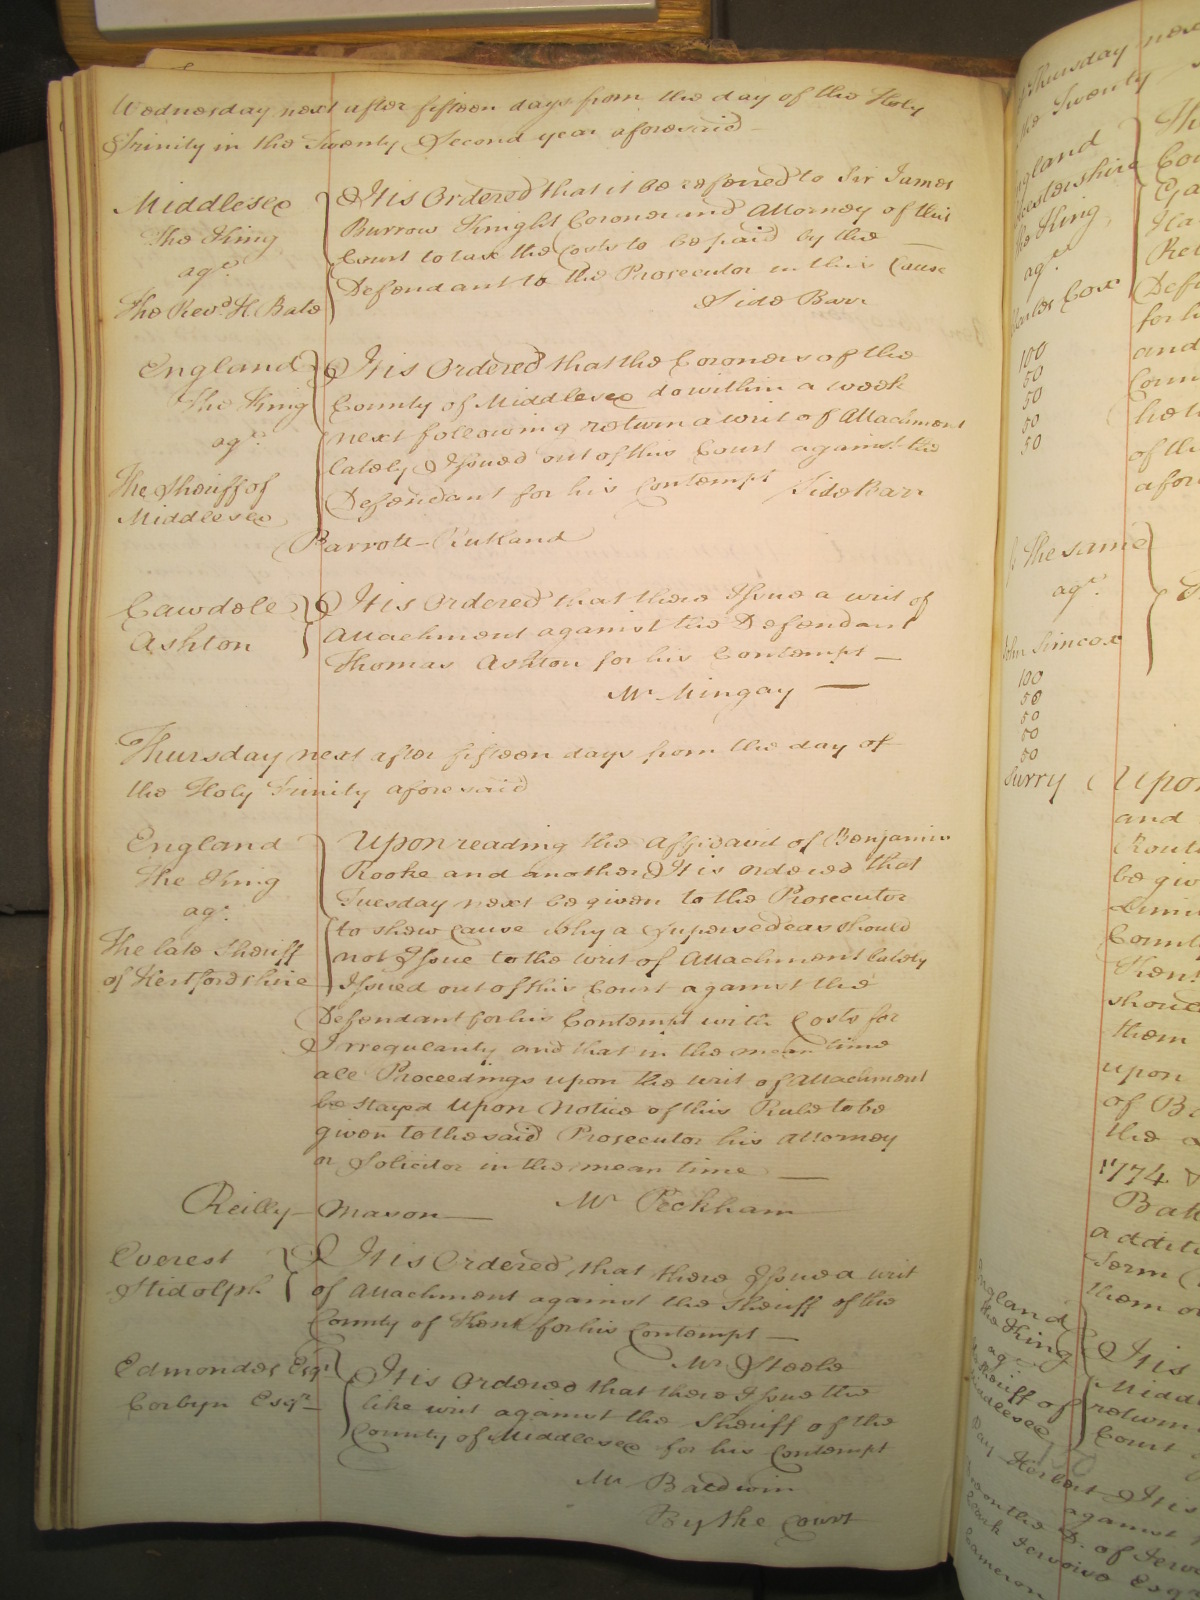 Wednesday next after fifteen days from the day of the Holy
Trinity in the Twenty Second year aforesaid
Middlesex
The King
agt.
The Revd. H. Bate
It is Ordered that it be referred to Sir James
Burrow Knight Coroner and Attorney of this
Court to tax the Costs to be paid by the
Defendant to the Prosecutor in this Cause
Side Barr
England
The King
agt.
The Sheriff of
Middlesex
It is Ordered that the Coroners of the
County of Middlesex do within a week
next following return a writ of Attachment
lately Issued out of this Court against the
Defendant for his Contempt Side Barr
Parrott - Rutland
Cawdele
Ashton
It is Ordered that there Issue a writ of
Attachment against the Defendant
Thomas Ashton for his Contempt
Mr. Mingay
Thursday next after fifteen days from the day of
the Holy Trinity aforesaid
England
The King
agt.
The late Sheriff
of Hertfordshire
Upon reading the Affidavit of Benjamin
Rooke and another It is ordered that
Tuesday next be given to the Prosecutor
to shew Cause why a Supersedeas should
not Issue to the writ of Attachment lately
Issued out of this Court against the
Defendant for his Contempt with Costs for
Irregularity and that in the mean time
all Proceedings upon the writ of Attachment
be stayed Upon Notice of this Rule to be
given to the said Prosecutor his Attorney
or Solicitor in the mean time
Mr. Peckham
Reilly - Mason
Everest
Stidolph
It is Ordered that there Issue a writ
of Attachment against the Sheriff of the
County of Kent for his Contempt
Mr. Steele
Edmondes Esqr.
Corbyn Esqr.
It is Ordered that there Issue the
like writ against the Sheriff of the
County of Middlesex for his Contempt
Mr. Baldwin
By the Court
Thursday next
the Twenty
The King
agt.
100
50
50
50
50
The same
agt.
John Simcox
100
50
50
50
50
Surry
Upon
and
be giv
them
upon
of B
the
1774
England
The King
agt.
Sheriff of
Middlesex
It is
Midd
return
Court
Day - Herbert - It is
against